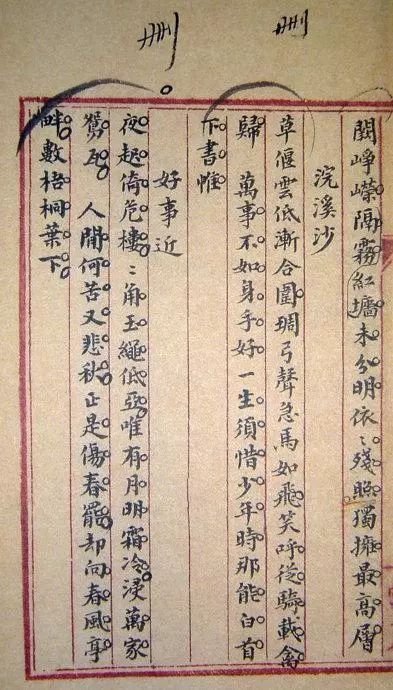 刪
刪
闕崢嶸隔霧紅墻未分明依〻殘照獨擁最高層
浣溪沙
草偃雲低漸合圍琱弓聲急馬如飛笑呼從騎載禽
歸　萬事不如身手好一生須惜少年時那能白首
下書帷
好事近
夜起倚危樓〻角玉繩低亞唯有月明霜冷浸萬家
鴛瓦　人間何苦又悲秋正是傷春罷却向春風亭
畔數梧桐葉下